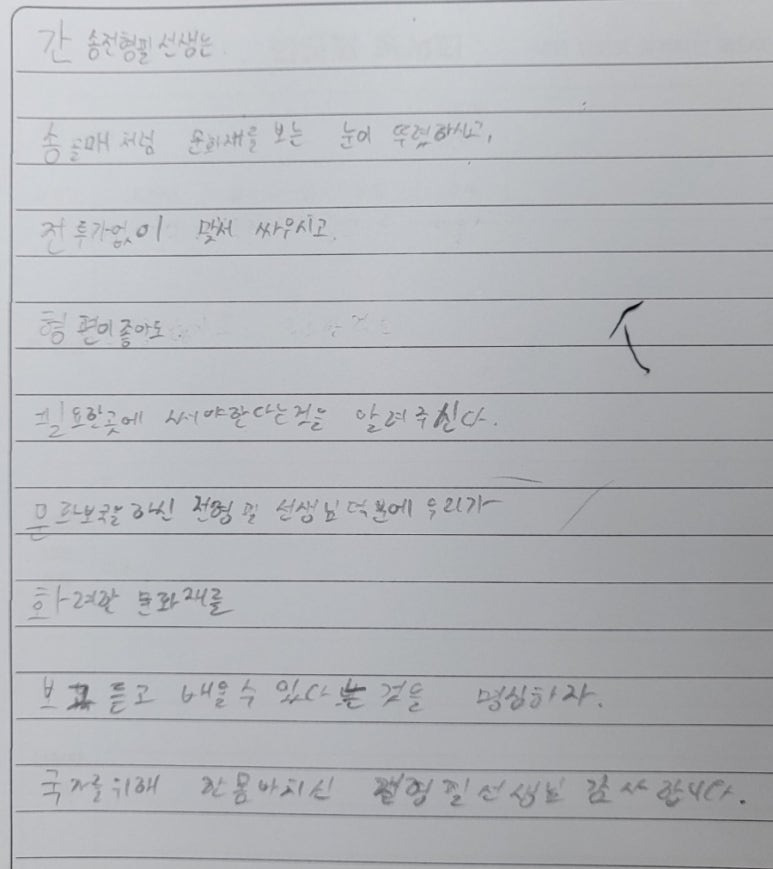 간 송전형필 선생은
송골매처럼 문화재를 보는 눈이 뚜렷하시고,
전투가없이 맞서 싸우시고
형편이좋아도
필요한곳에 써야한다는것을 알려주신다.
문화보국을 하신 전형필 선생님덕분에 우리가
화려한 문화재를
보고 듣고 배울수 있다는 것을 명심하자.
국가를위해 한몸바치신 전형필선생님 감사합니다.